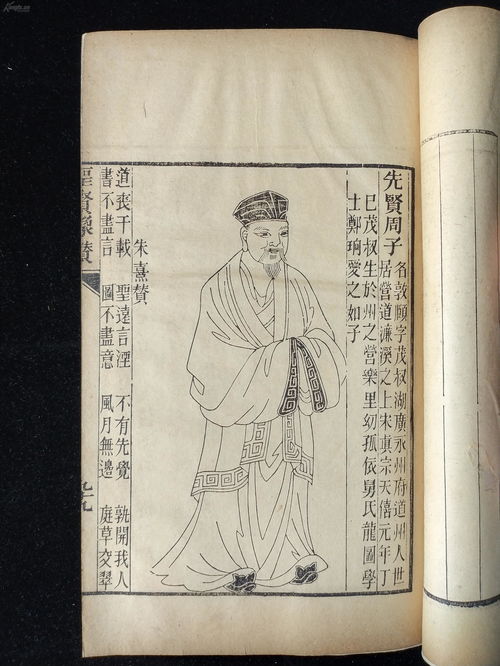 先賢周子 名敦頤字茂叔湖廣永州府道州人世
居營道濂溪之上宋眞宗天禧元年丁
巳茂叔生於州之營樂里幼孤依舅氏龍圖學
士鄭珦愛之如子
朱熹贊
道喪千載 聖遠言湮 不有先覺 孰開我人
書不盡言 圖不盡意 風月無邊 庭草交翠
聖賢像贊